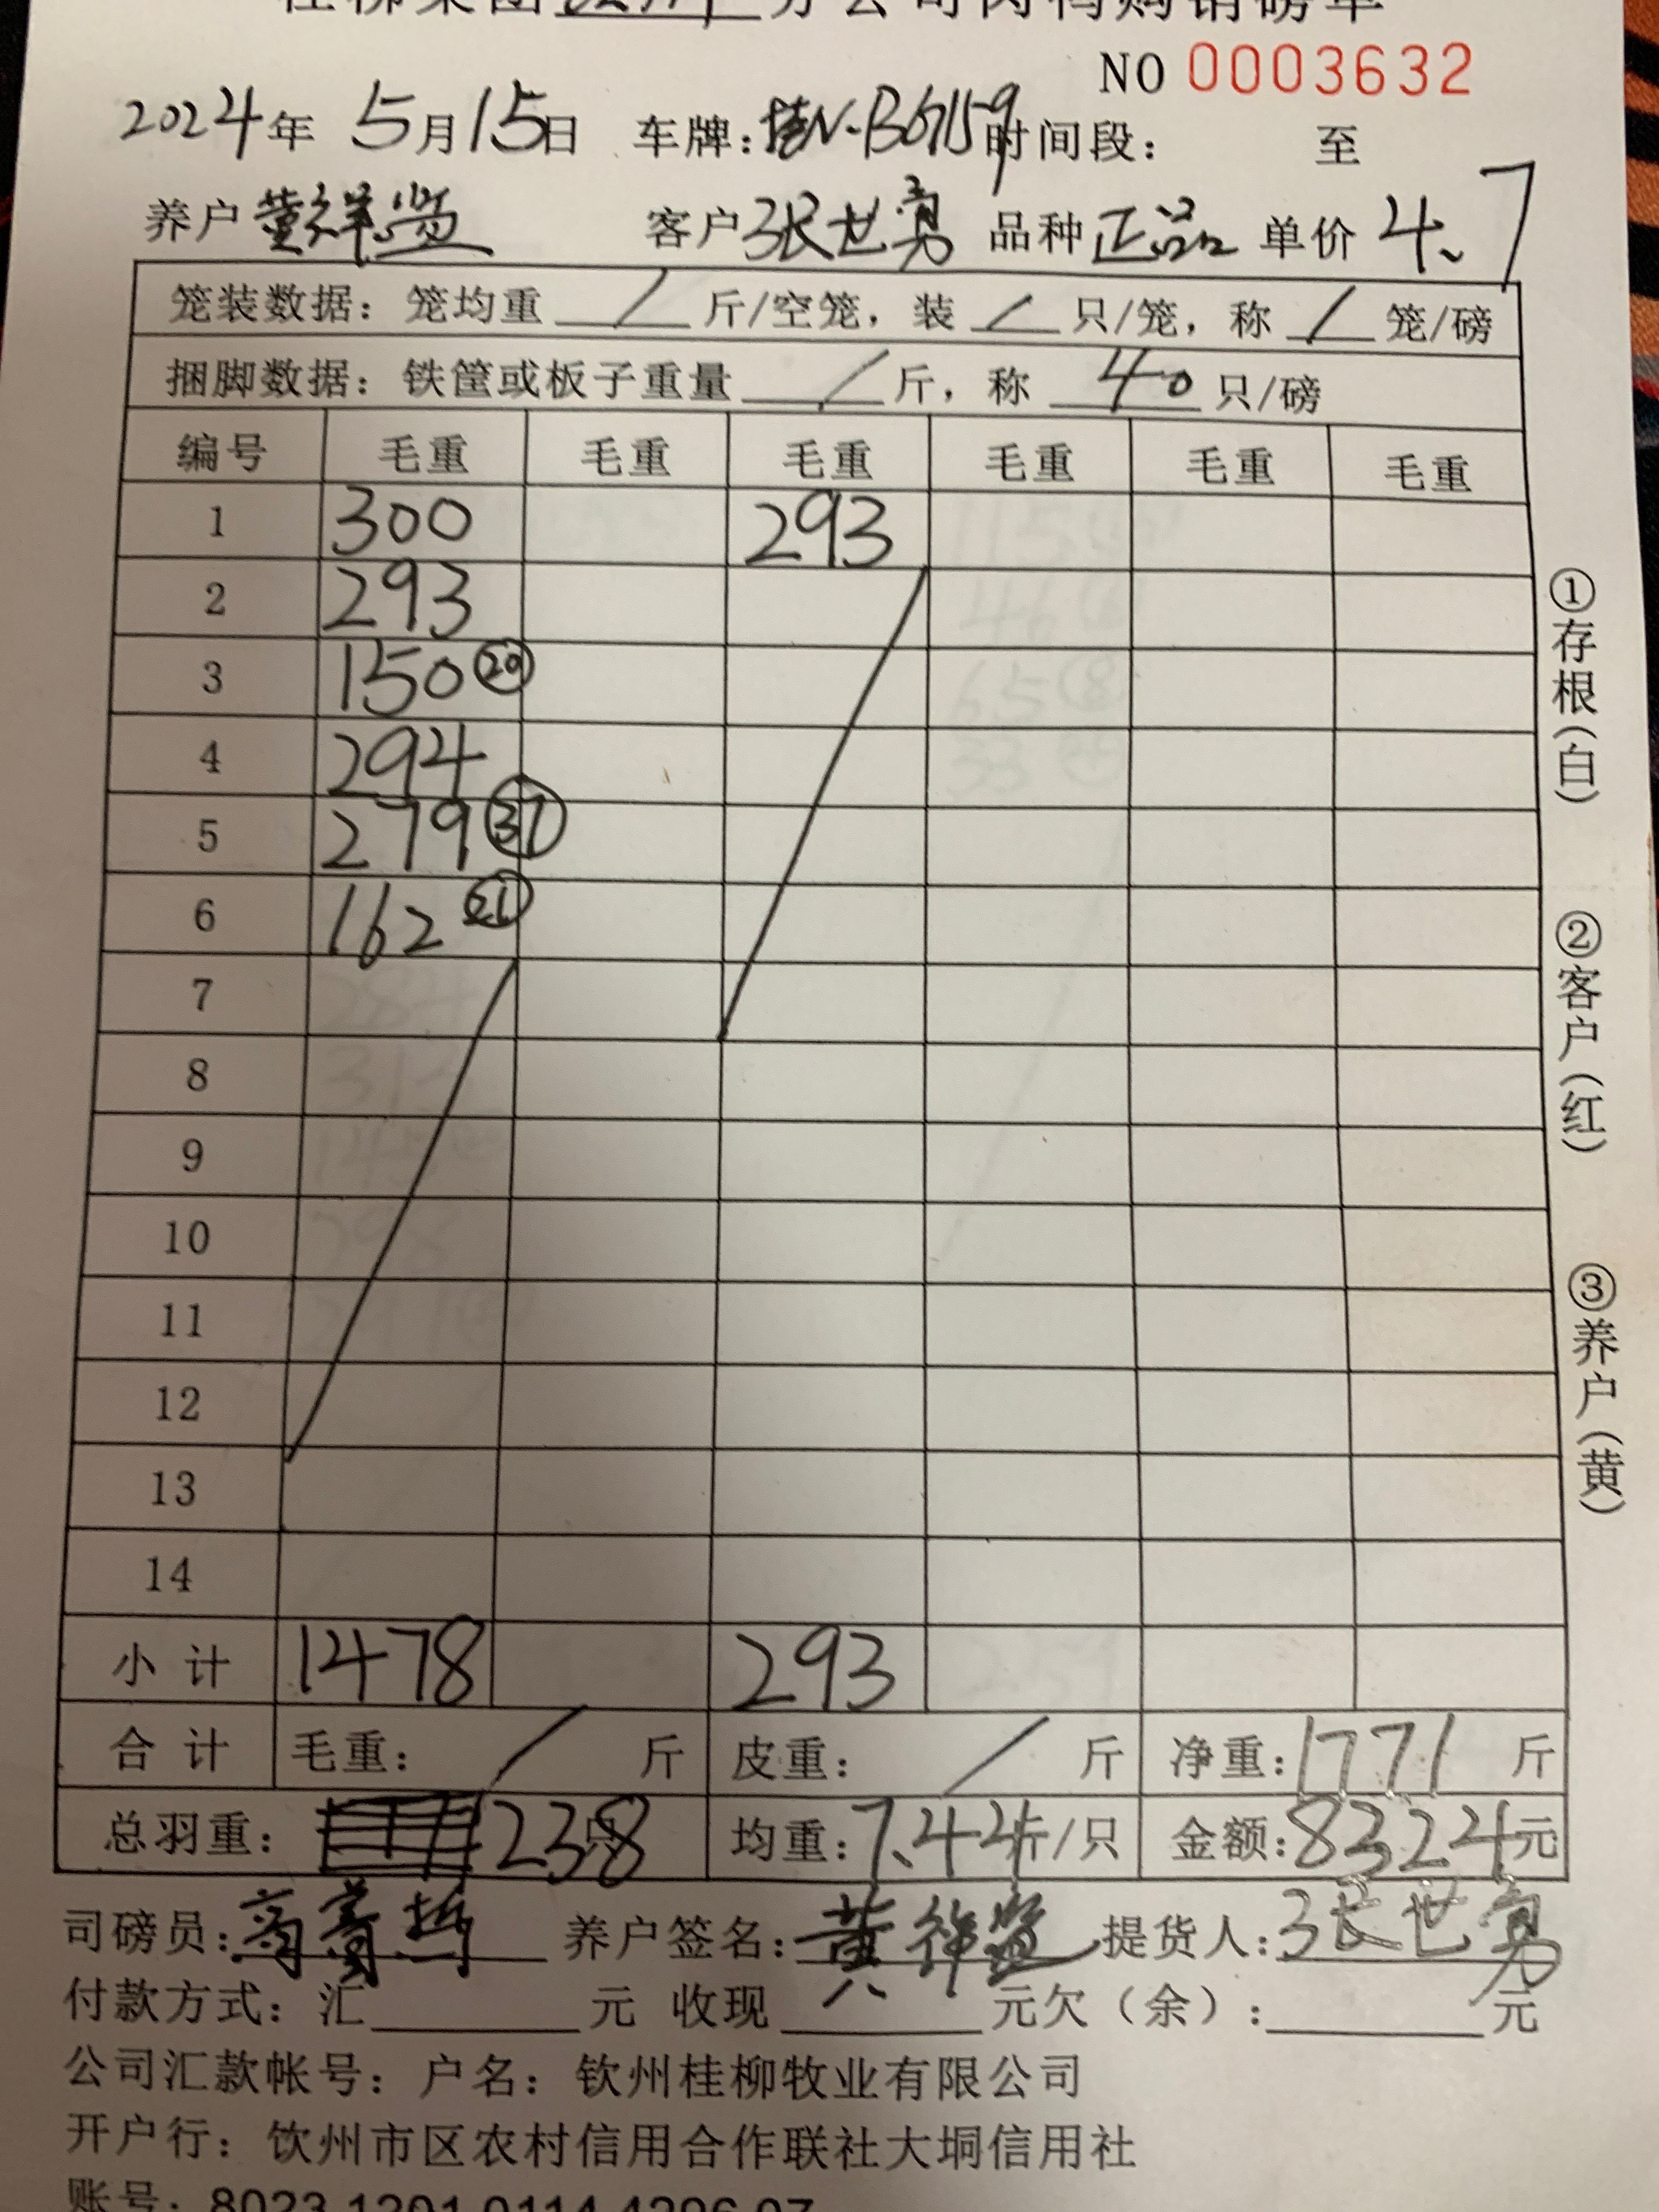 桂柳集团 分公司肉鸭购销磅单
NO 0003632
2024年 5月15日 车牌:桂N-B6759 时间段: 至
养户 黄祥 客户 张世勇 品种 正品 单价 4.7
笼装数据: 笼均重 / 斤/空笼, 装 / 只/笼, 称 / 笼/磅
捆脚数据: 铁筐或板子重量 / 斤, 称 40 只/磅
编号 毛重 毛重 毛重 毛重 毛重 毛重
1 300 293
2 293
3 150 ⑳
4 294
5 279 ㊲
6 162 ㉑
7
8
9
10
11
12
13
14
小计 1478 293
合计 毛重: / 斤 皮重: / 斤 净重: 1771 斤
总羽重: 238 只 均重: 7.44 斤/只 金额: 8324 元
司磅员: 养户签名: 黄祥 提货人: 张世勇
付款方式: 汇 元 收现 元欠(余): 元
公司汇款帐号: 户名: 钦州桂柳牧业有限公司
开户行: 钦州市区农村信用合作联社大垌信用社
账号: 8023 1201 0114 4296 07
①存根(白)
②客户(红)
③养户(黄)